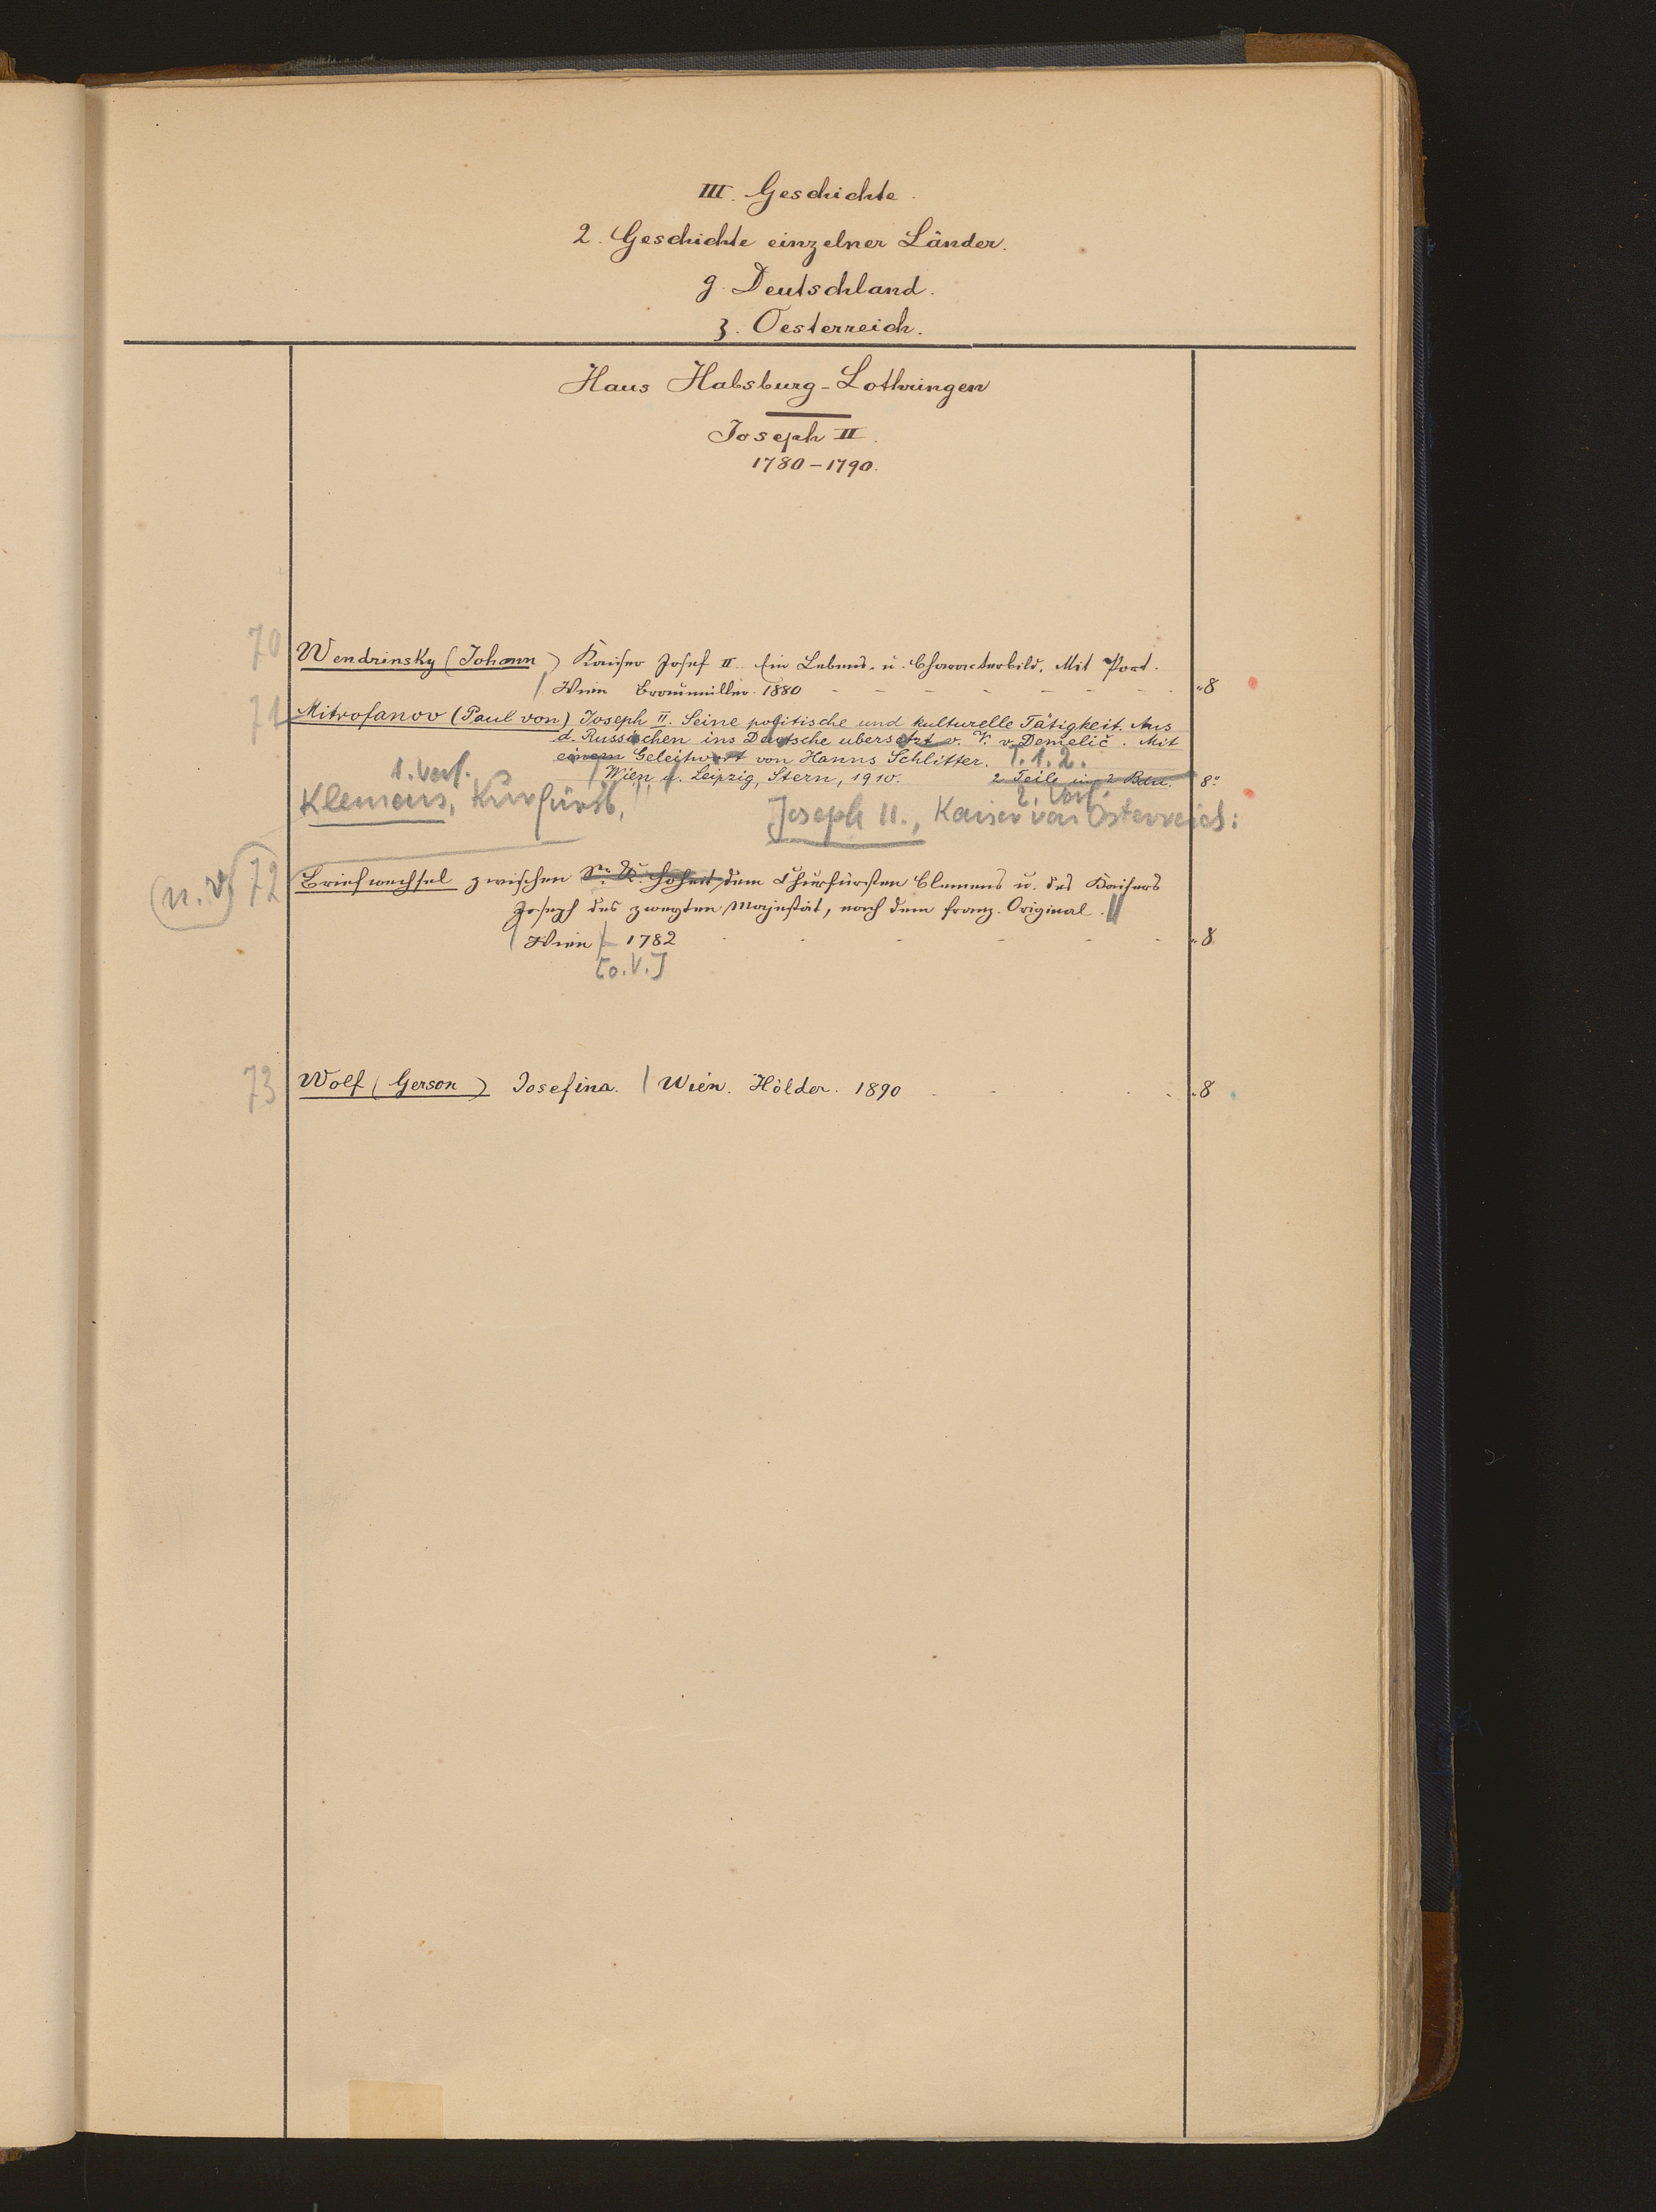 III. Geschichte.
2. Geschichte einzelner Länder.
g. Deutschland.
3. Oesterreich.
Haus Habsburg-Lothringen
Joseph II.
1780-1790.
70 Wendrinsky (Johann) Kaiser Josef II. Ein Lebens- u. Characterbild. Mit Port.
Wien Braumüller. 1880 - - - - - - - 8
71 Mitrofanov (Paul von) Joseph II. Seine politische und kulturelle Tätigkeit. Aus
d. Russischen ins Deutsche übersetzt v. V. v. Demelič. Mit
einem Geleitwort von Hanns Schlitter. T. 1. 2.
Wien u. Leipzig, Stern, 1910. 2 Teile in 2 Bdn. 8°
1. Verf. 2. Verf.
Klemens, Kurfürst, Joseph II., Kaiser von Österreich:
(n. V.) 72 Briefwechsel zwischen Sr. K. Hoheit, dem Churfürsten Clemens u. des Kaisers
Joseph des zweyten Majestät, nach dem franz. Original.
Wien 1782 - - - - - - 8
[o. V.]
73 Wolf (Gerson) Josefina. Wien. Hölder. 1890 - - - - - 8